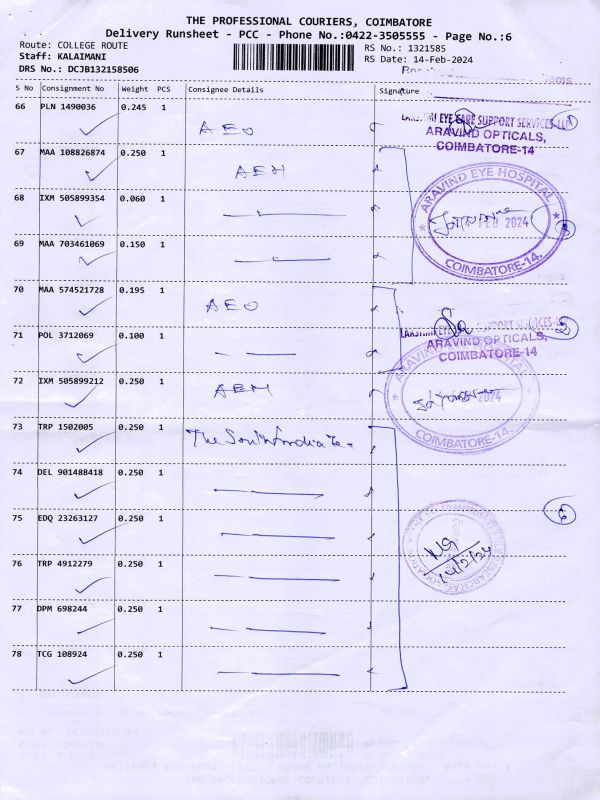 THE PROFESSIONAL COURIERS, COIMBATORE
Delivery Runsheet - PCC - Phone No.:0422-3505555 - Page No.:6
Route: COLLEGE ROUTE
RS No.: 1321585
Staff: KALAIMANI
RS Date: 14-Feb-2024
DRS No.: DCJB132158506
S No Consignment No Weight PCS Consignee Details Signature
66 PLN 1490036 0.245 1 AEO
LAKSHMI EYE CARE SUPPORT SERVICES-LLP
ARAVIND OPTICALS,
COIMBATORE-14
1
67 MAA 108826874 0.250 1 AEH
68 IXM 505899354 0.060 1
ARAVIND EYE HOSPITAL
FEB 2024
COIMBATORE-14.
3
69 MAA 703461069 0.150 1
70 MAA 574521728 0.195 1 AEO
71 POL 3712069 0.100 1
LAKSHMI EYE SUPPORT SERVICES-LLP
ARAVIND OPTICALS,
COIMBATORE-14
2
72 IXM 505899212 0.250 1 AEH
ARAVIND EYE HOSPITAL
2024
COIMBATORE-14.
73 TRP 1502005 0.250 1 The South India Te
74 DEL 901488418 0.250 1
75 EDQ 23263127 0.250 1
6
76 TRP 4912279 0.250 1
14/2/24
77 DPM 698244 0.250 1
78 TCG 108924 0.250 1